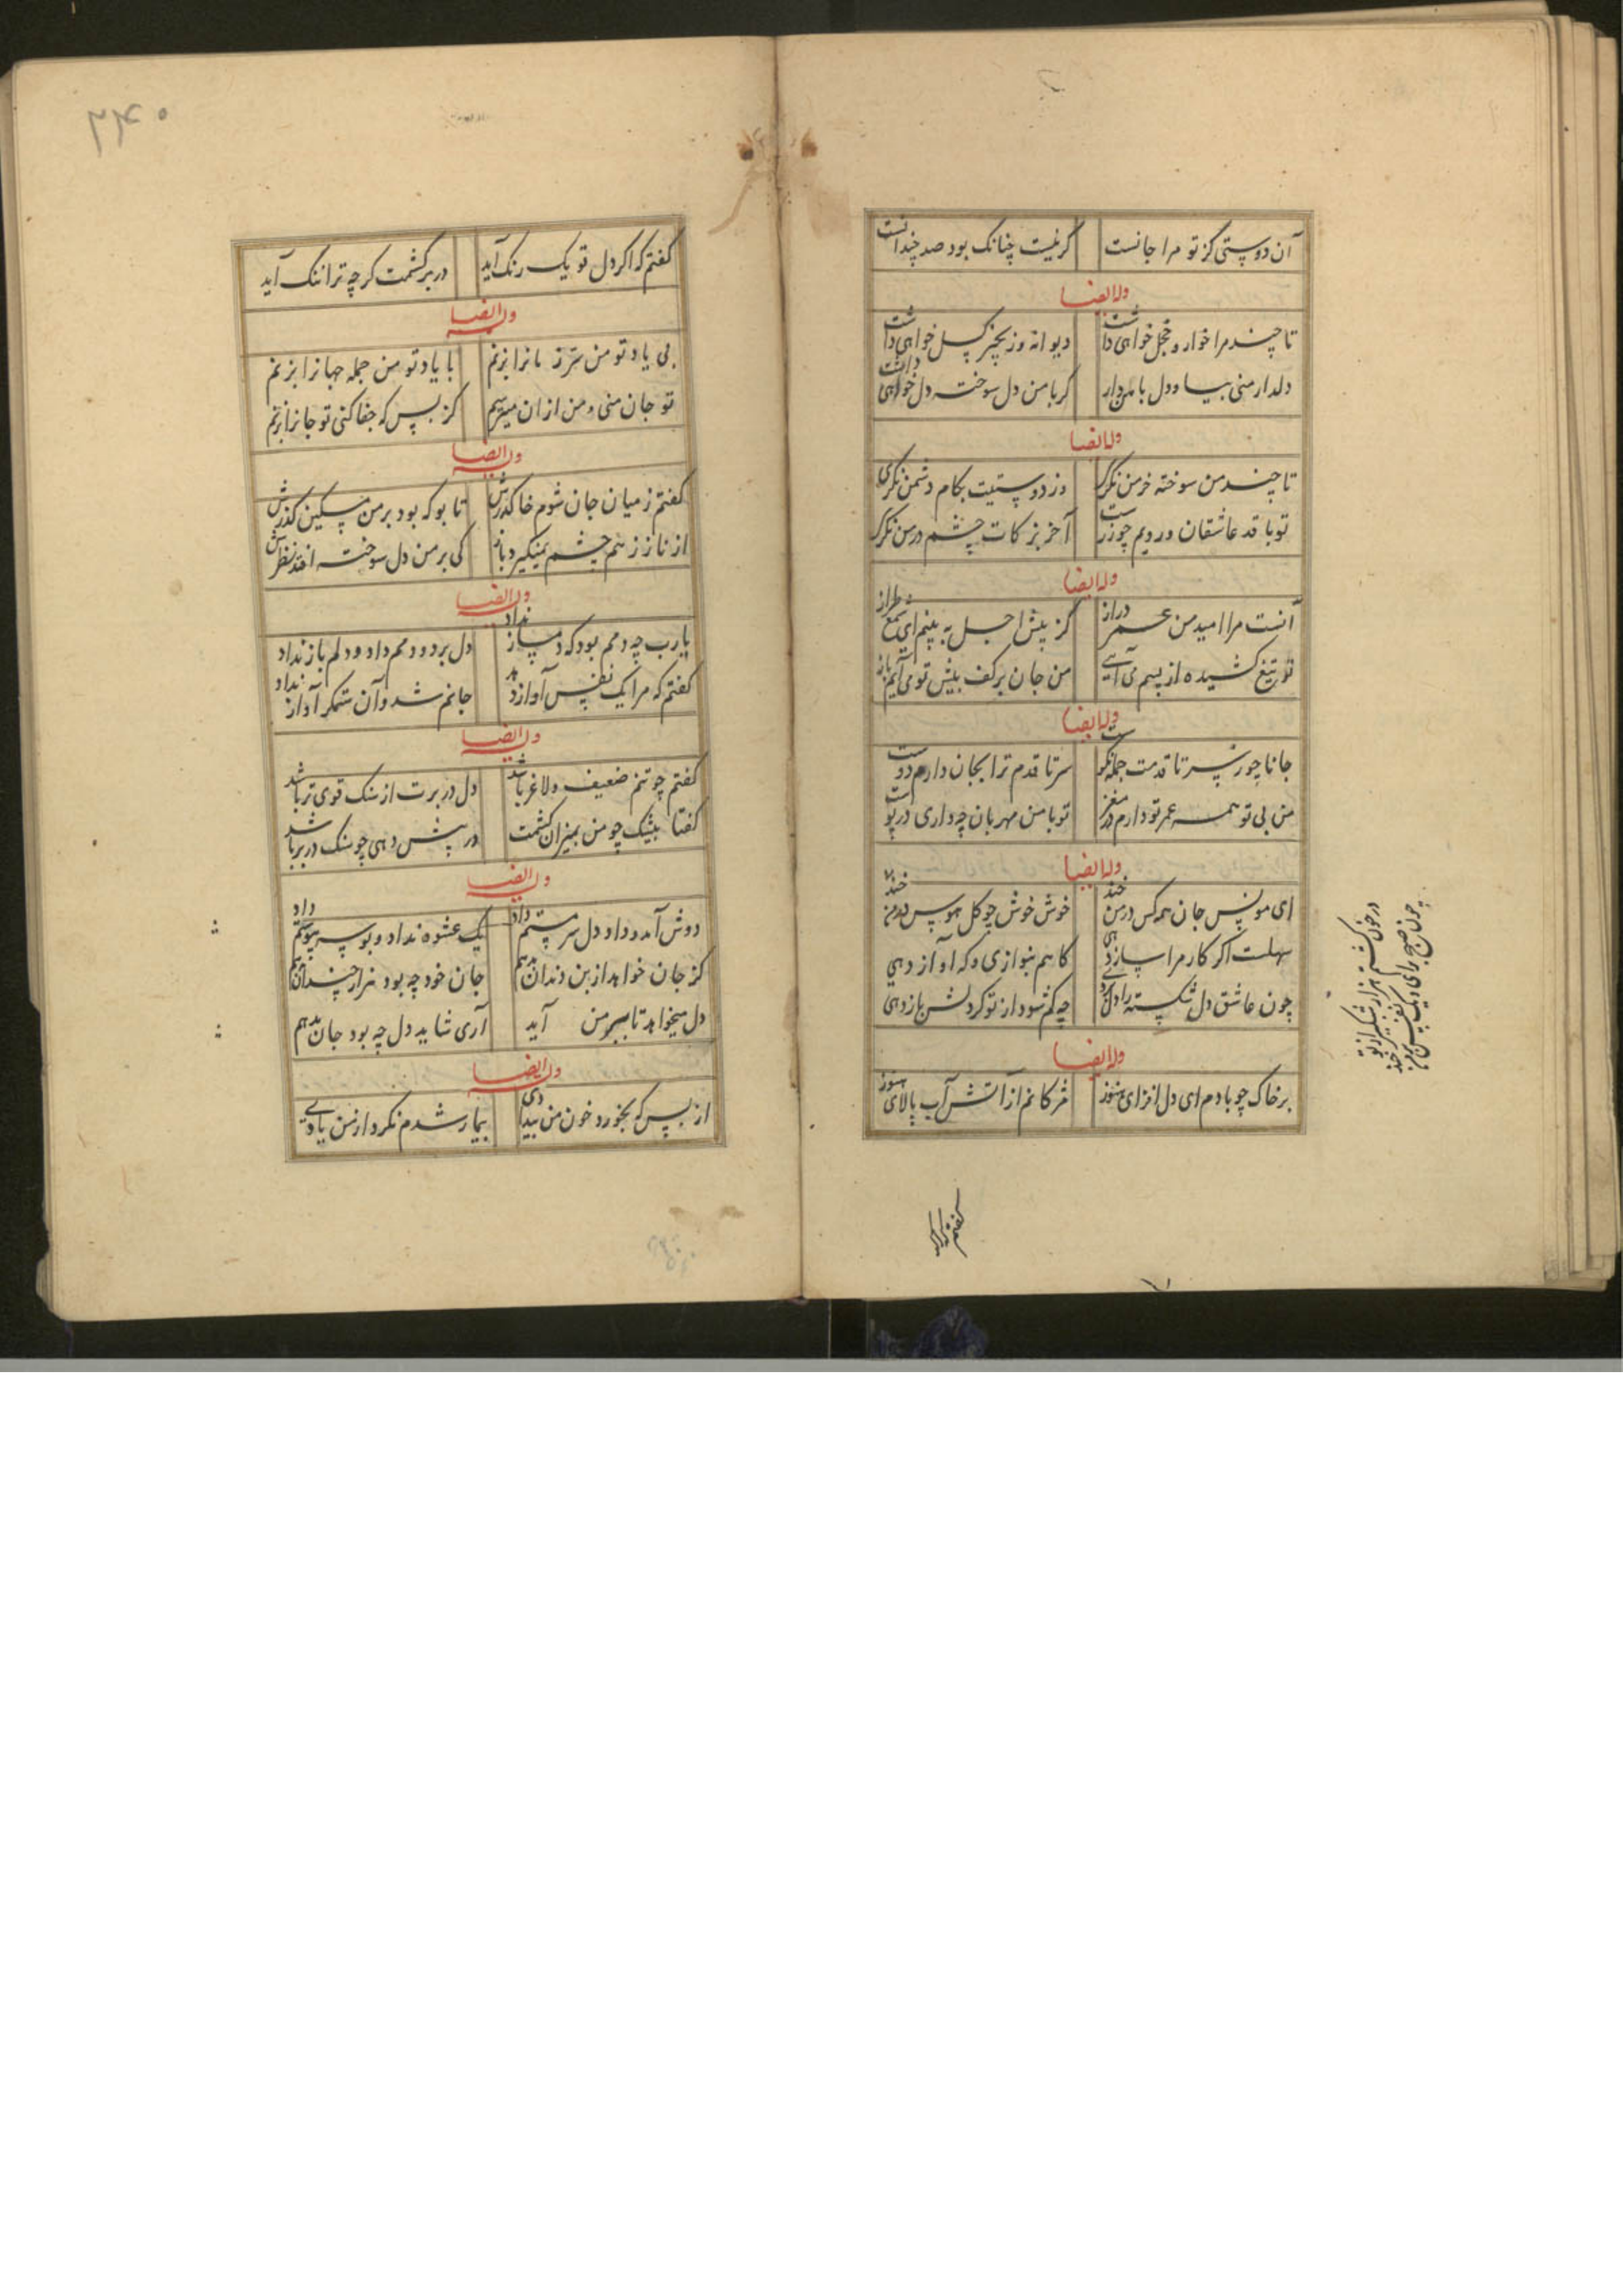 آن دوستی کز تو مرا جانست گر نیست چنانک بود صد چندانست
وله ایضا
تا چند مرا خوار و خجل خواهی داشت دیوانه و زنجیر کسل خواهی داشت
دلدار منی بیا و دل با من دار کر با من دل سوخته دل خواهی داشت
وله ایضا
تا چند من سوخته خرمن نکری وز دوستیت بکام دشمن نکری
تو باقد عاشقان و رویم چو زرست آخر بزکات چشم در من نکری
وله ایضا
آنست مرا امید من عمر دراز کز پیش اجل به بینم ای شمع طراز
تو تیغ کشیده از پسم می آیی من جان بر کف پیش تو می آیم باز
وله ایضا
جانا چو ز سر تا قدمت جمله نکوست سر تا قدم ترا بجان دارم دوست
من بی تو همه عمر تو دارم در مغز تو با من مهربان چه داری در پوست
وله ایضا
ای مونس جان همه کس در من خند خوش خوش چو کل
سهلست اکر کار مرا ساز دهی کاهم بنوازی و که آواز دهی
چون عاشق دل شکسته را دل چه کم شود از تو کر دلش باز دهی
وله ایضا
بر خاک چو بادم ای دل افزای هنوز مژکانم از آتش آب پالای هنوز
در خون کشتم هزار شبکیر از تو
چون صبح برای
گفتم که اکر دل تو یک رنک آید در بر کشمت کرچه ترا ننک آید
وله ایضا
بی یاد تو من سر زبانرا نزنم با یاد تو من جمله جهانرا نزنم
تو جان منی و من ازان میترسم کز بس که جفا کنی تو جانرا نزنم
وله ایضا
کفتم ز میان جان شوم خاک درش تا بو که بود بر من مسکین کذرش
از ناز ز هم چشم نمیکیرد باز کی بر من دل سوخته افتد نظرش
وله ایضا
یارب چه دمم بود که دمساز نداد دل برد و دمم داد و دلم باز نداد
کفتم که مرا یک نفس آواز دهد جانم شد و آن ستمکر آواز نداد
وله ایضا
کفتم چو تنم ضعیف و لاغر باشد دل در برت از سنک قوی تر باشد
کفتا بیشک چو من بمیزان کشمت در پیش دهی چو سنک در بر باشد
وله ایضا
دوش آمد و داد دل سرمستم داد یک عشوه نداد و بوسه پیوستم داد
کر جان خواهد از بن دندان بدهم جان خود چه بود هزار چندان بدهم
دل میخواهد تا ببر من آید آری شاید دل چه بود جان بدهم
وله ایضا
از بس که بخورد خون من بیدادی بیمار شدم نکرد از من یادی